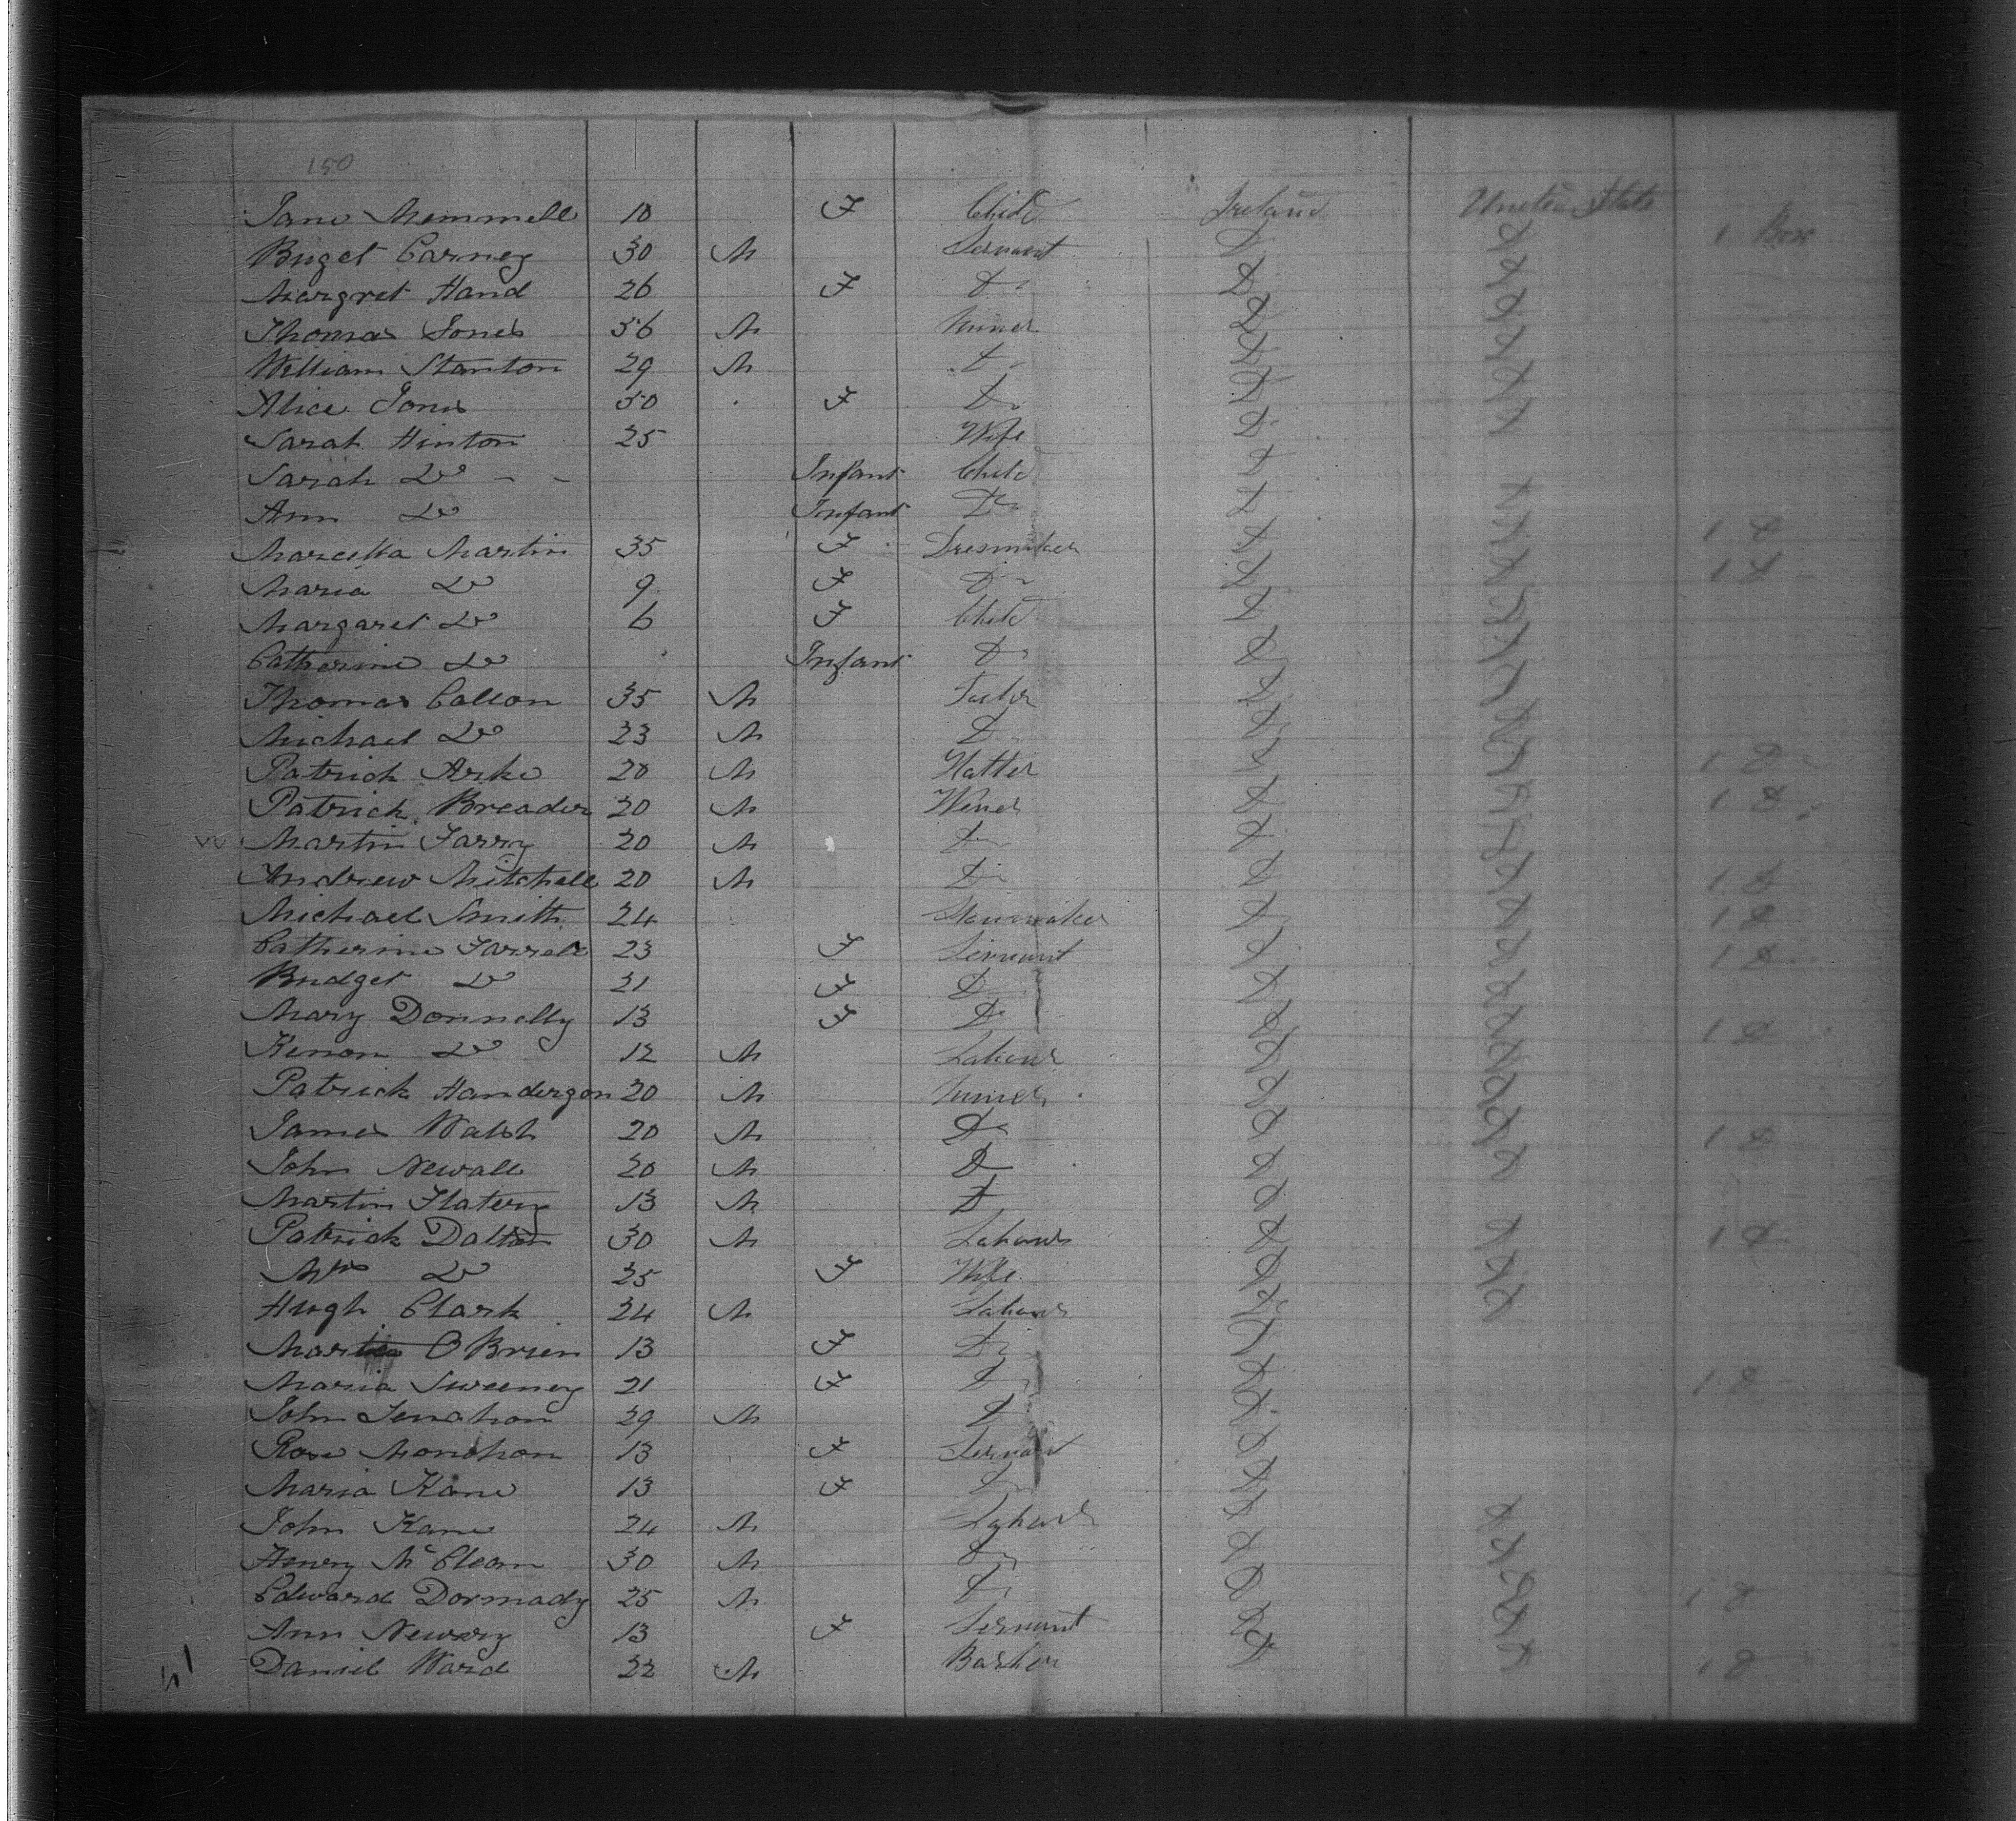 150
Jane Memmell 10 F Child Ireland United State
Buget Carney 30 M Servant D D 1 Box
Margret Hand 26 F Do D D
Thomas Jones 36 M Miner D D
William Stanton 29 M Do D D
Alice Jones 30 F Do D D
Sarah Hinton 25 Wife D D
Sarah Do - - Infant Child D
Ann Do Infant Do D D
Marcella Martin 35 F Dresmaker D D 1 D
Maria Do 9 F Do D D 1 D
Margaret Do 6 F Child D D
Catherine Do Infant Do D D
Thomas Callon 35 M D D
Michael Do 23 M D D D
Patrick Arke 20 M Hatter D D 1 D
Patrick Breader 20 M D D 1 D
Martin Farry 20 M Do D D
Andrew Mitchell 20 M Do D D 1 D
Michael Smith 24 D D 1 D
Catherine Farrell 23 F Servant D D 1 D
Bridget Do 21 F D D D
Mary Donnelly 13 F Do D D 1 D
Kenon Do 12 M Labour D D
Patrick Handergon 20 M Miner D D
James Walsh 20 M Do D D 1 D
John Newall 20 M D D D
Martin Flatery 13 M D D
Patrick Dalton 30 M Labour D D 1 D
Mrs Do 25 F Wife D D
Hugh Clark 24 M Labour Do D
O Brien 13 F Do D
Maria Sweeney 21 F D D 1 D
John Lenahon 29 M D D
Rose Monohon 13 F Servant D
Maria Kane 13 F D D
John Kane 24 M Labour D D
Henry Mc Cleam 30 M Do D D
Edward Dormady 25 M Do D D 1 D
Ann Newery 13 F Servant D D
Daniel Ward 22 M D D 1 D